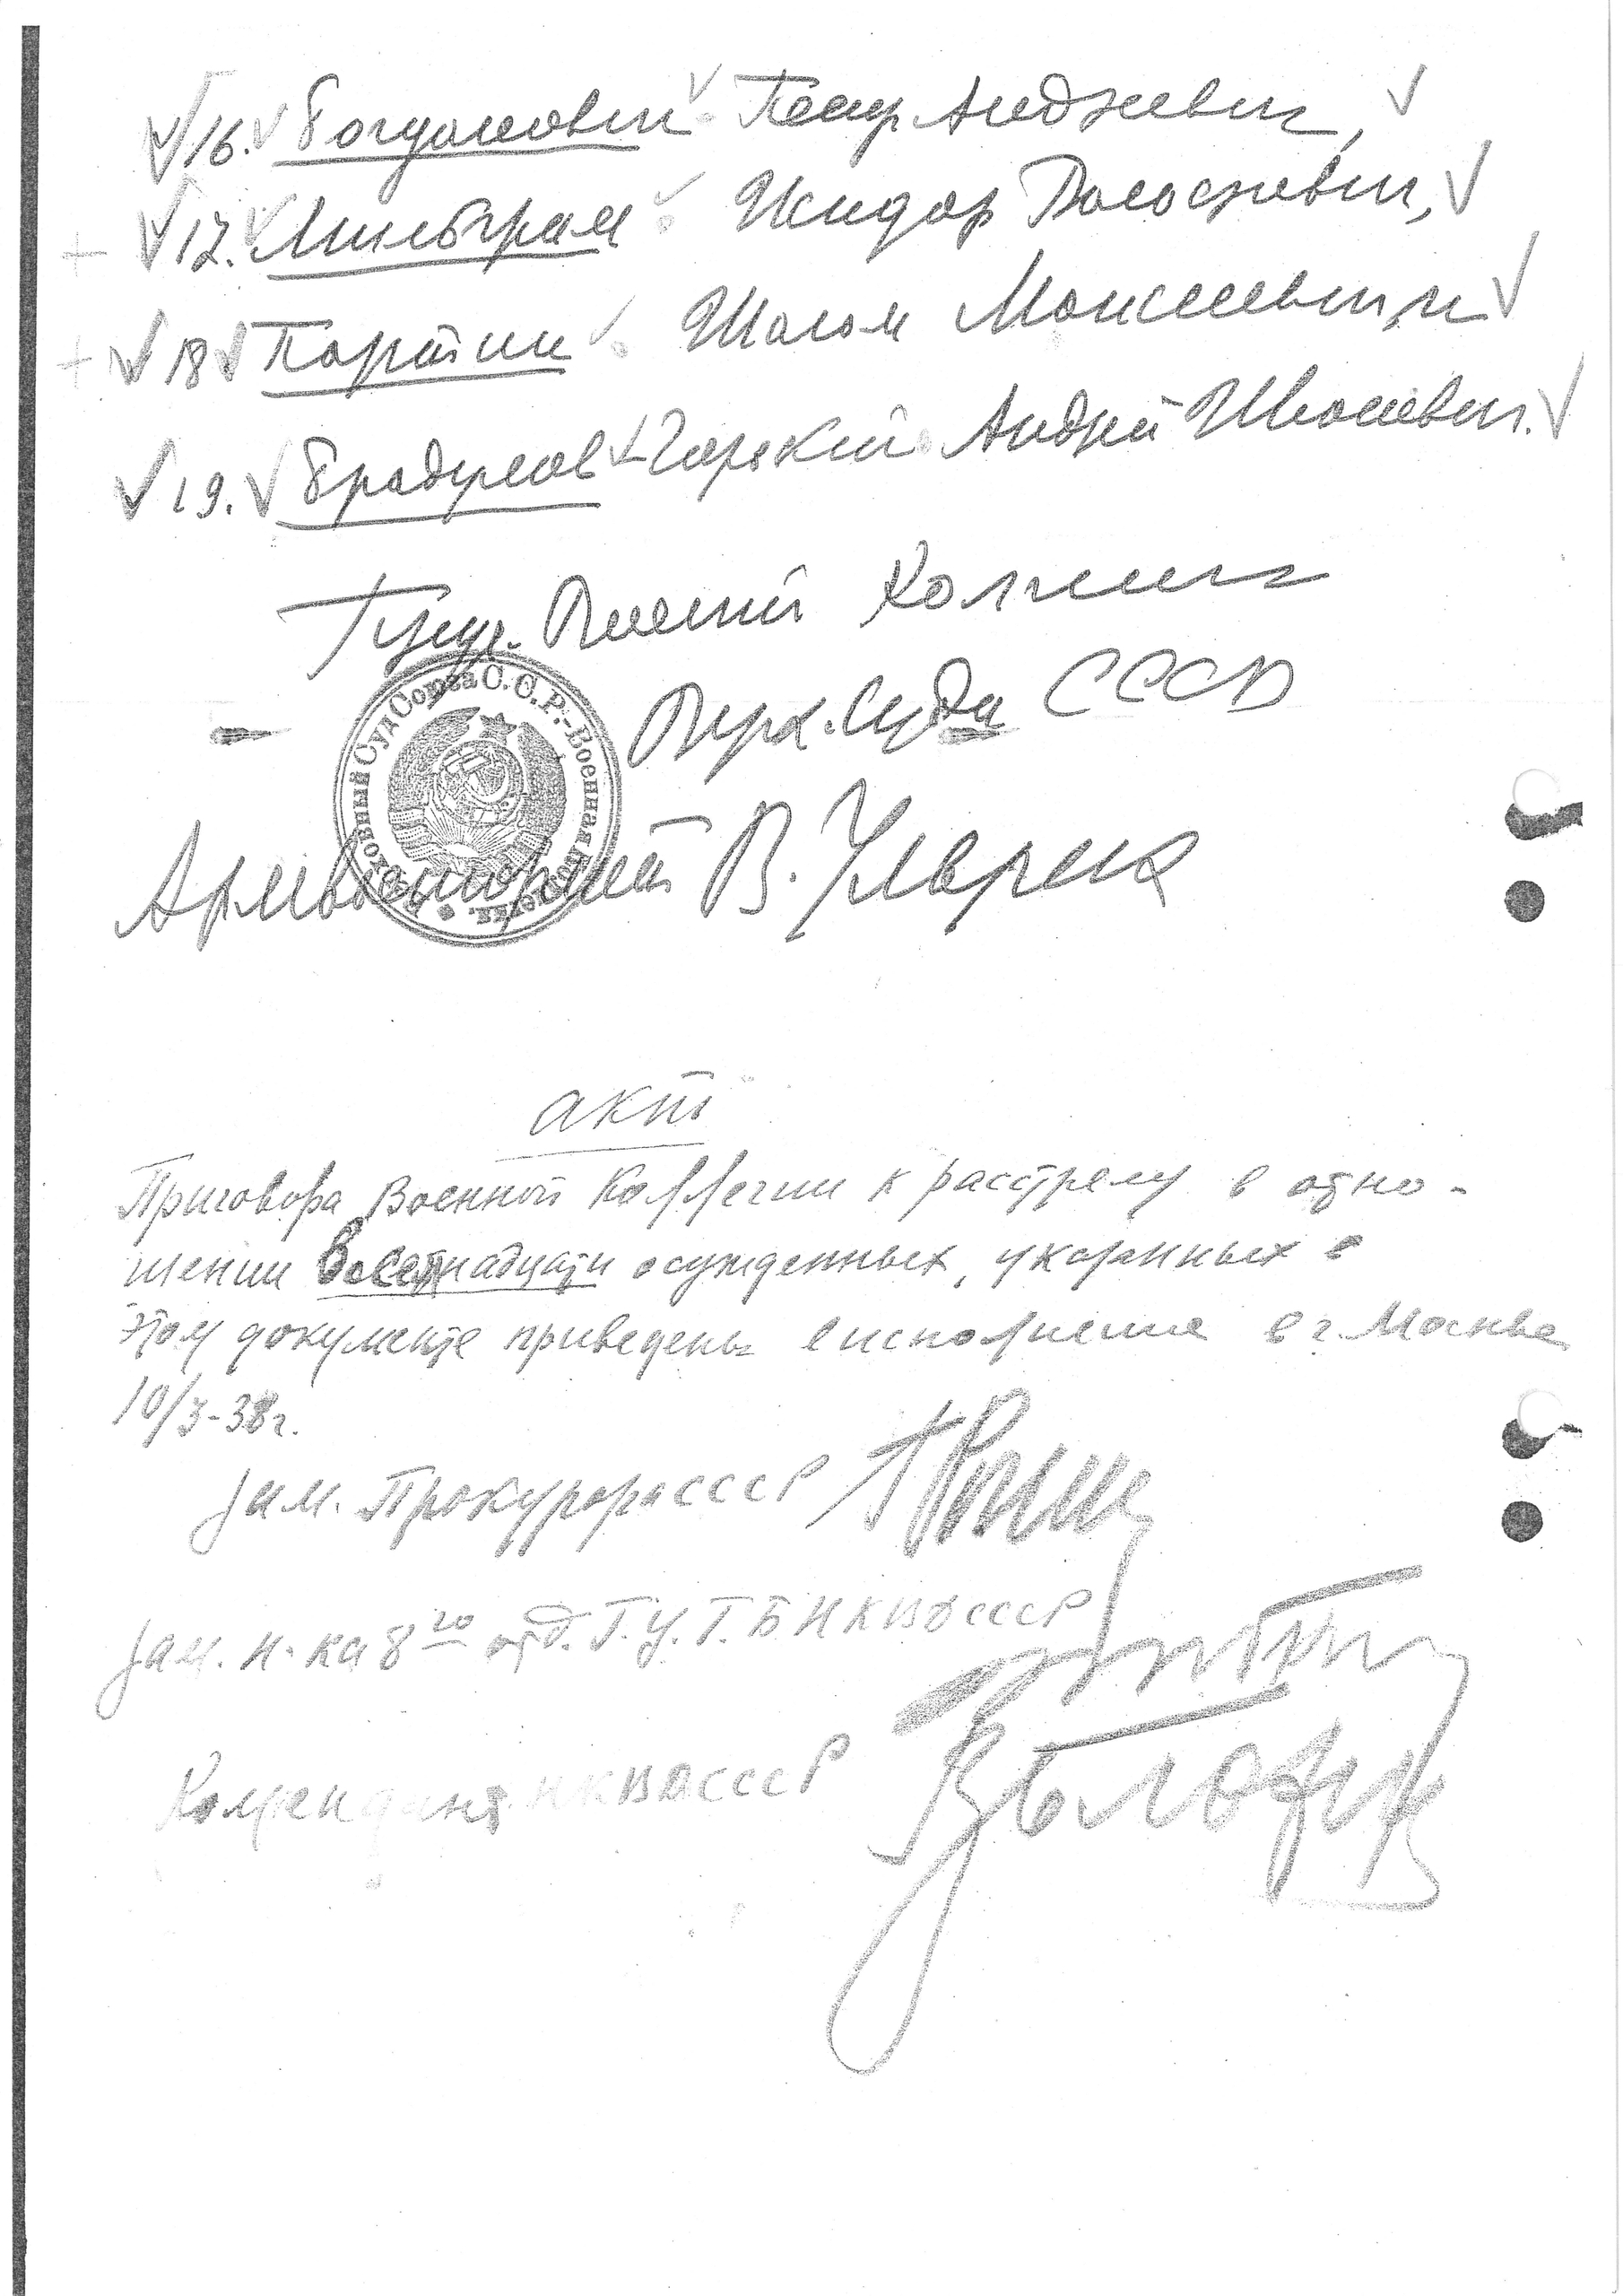 16. Богданович Петр Андреевич,
17. Мильграм Исидор Вольфович,
18. Картин Шолом Моисеевич и
19. Брадулов-Горский Андрей Иванович.
Пред. Военной Коллегии
Верх. Суда СССР
Армвоенюрист В. Ульрих
Верховный Суд Союза С.С.Р.-Военная Коллегия.
акт
Приговора Военной Коллегии к расстрелу в отно-
шении осужденных, указанных в
этом документе приведены в исполнение в г. Москве
10/3-38г.
Зам. Прокурора СССР
Зам. н-ка 8го отд. Г.У.Г.Б НКВД СССР
Комендант НКВД СССР